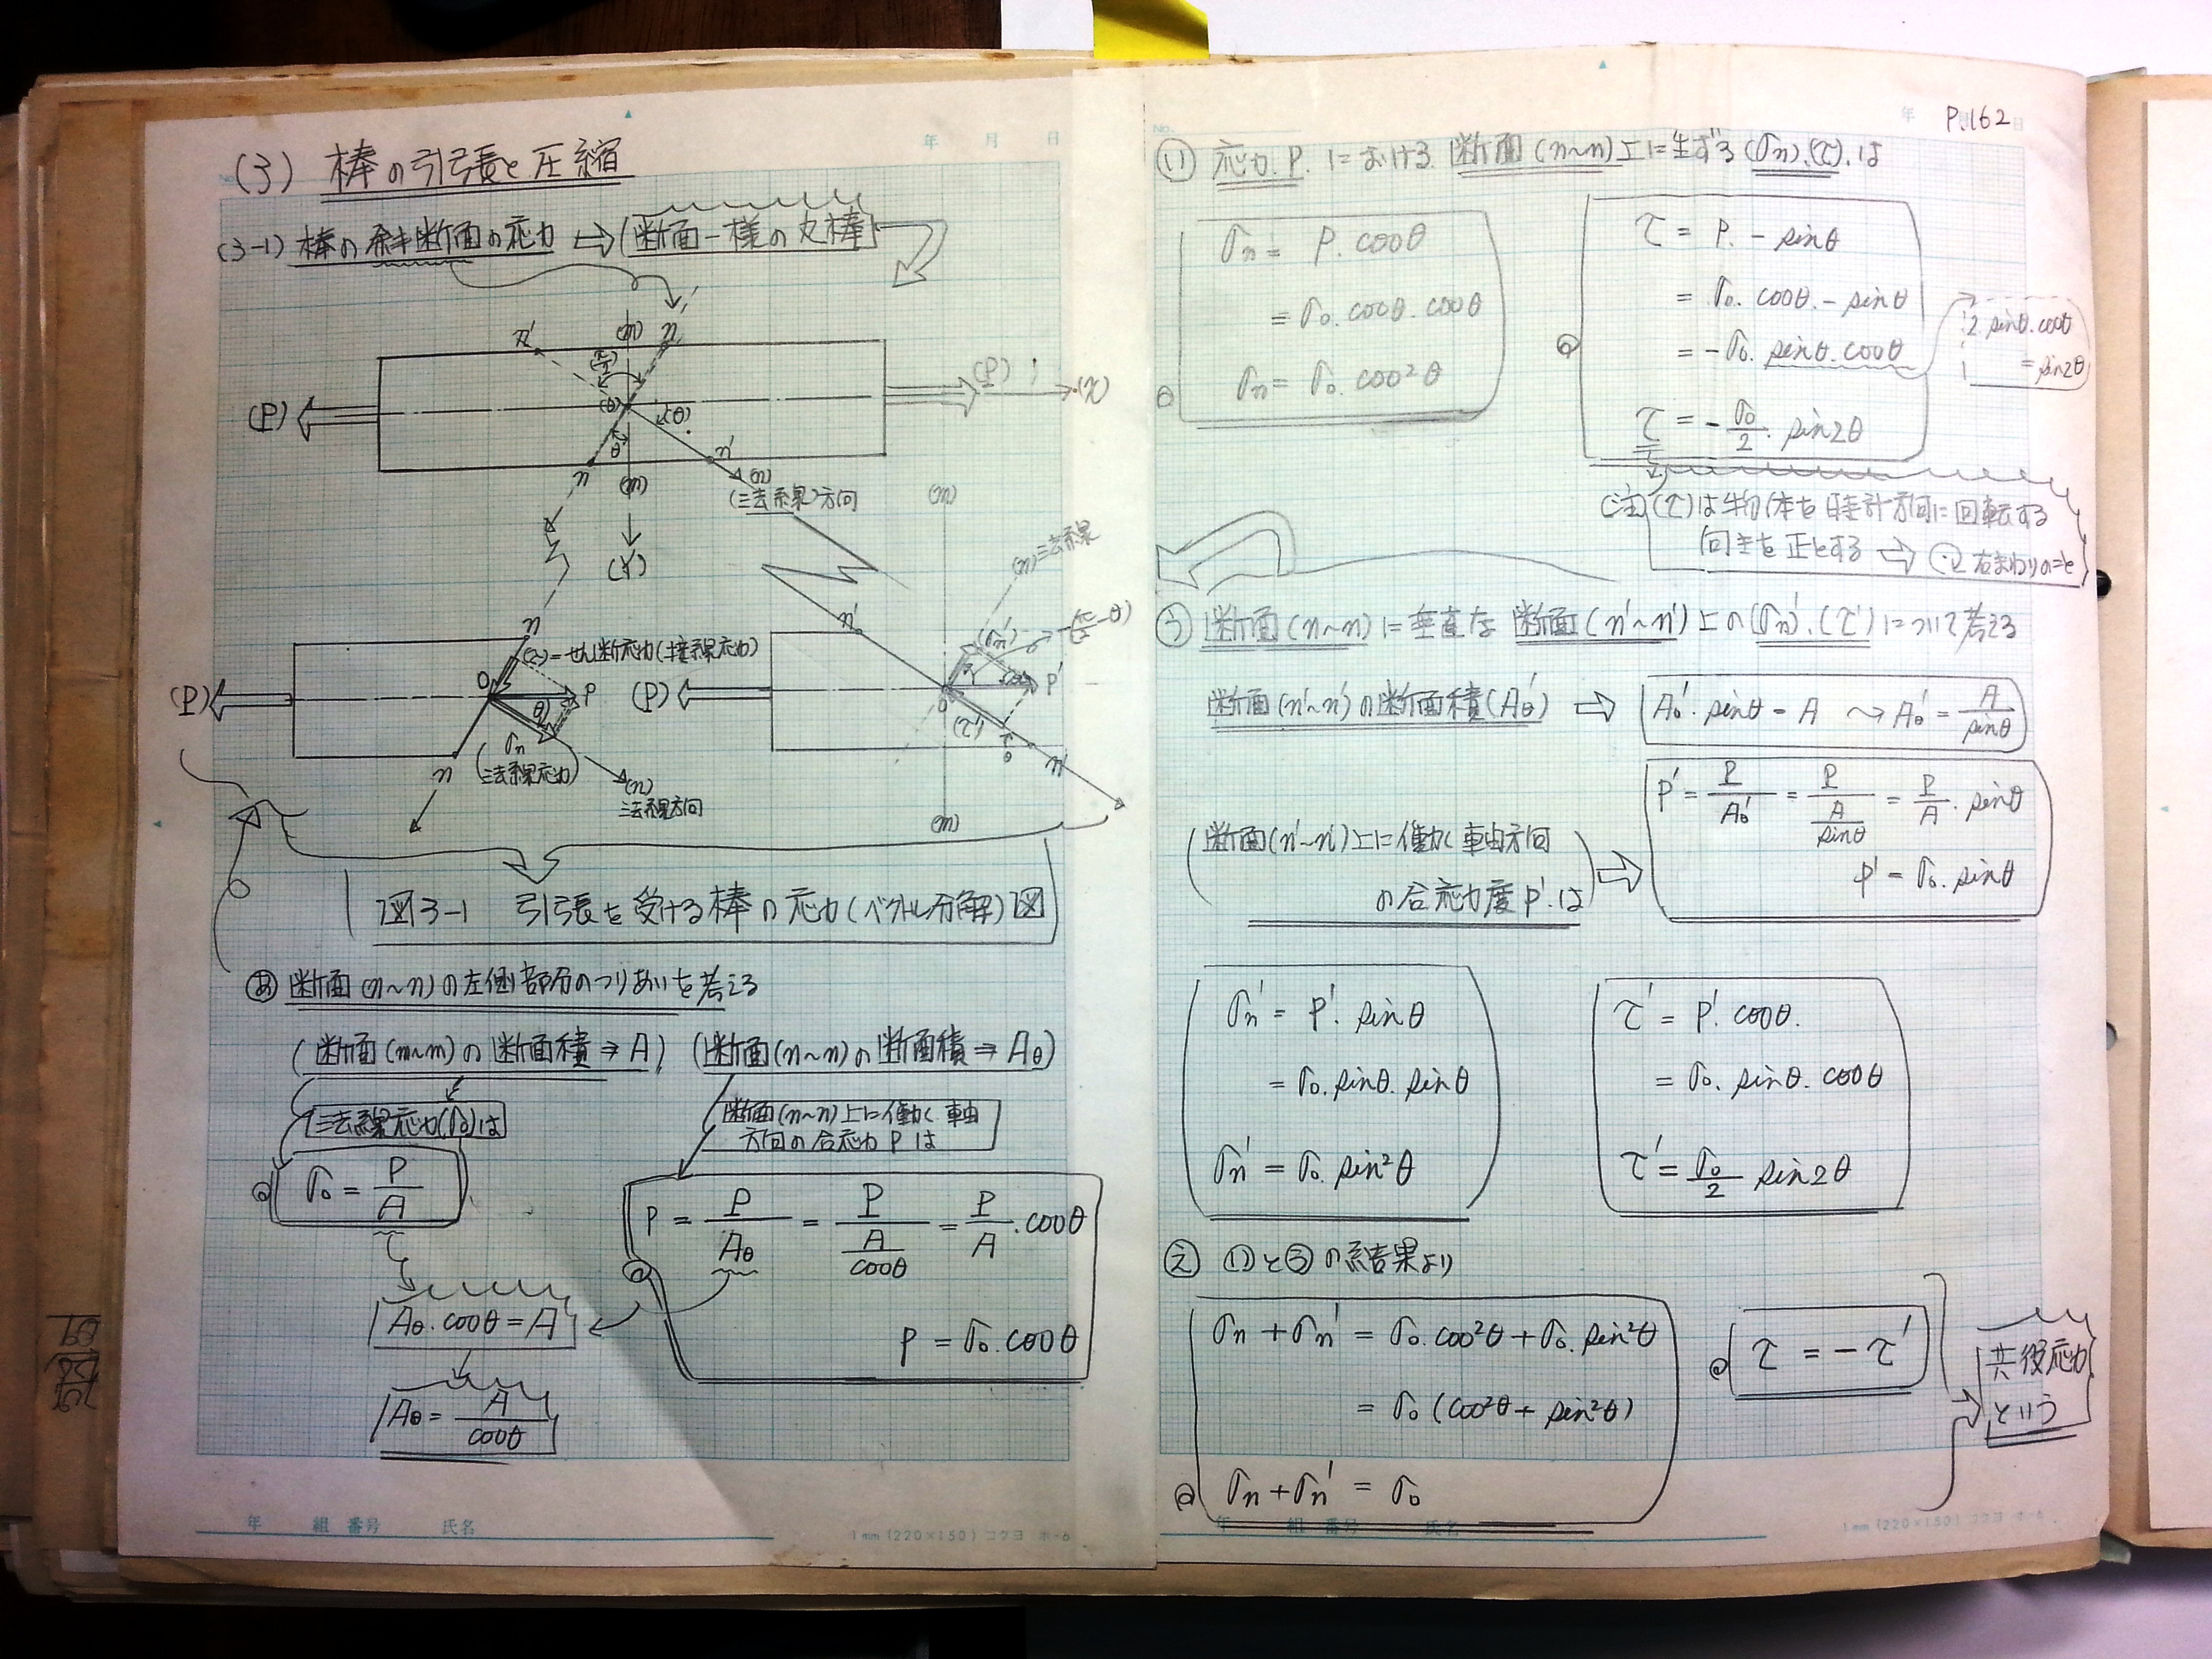 (3) 棒の引張と圧縮
(3-1) 棒の斜断面の応力 ⇨ 断面一様の丸棒
n' (m) n'
(π/2)
(P) (P) (x)
(θ) (θ)
θ
n (m) n' (n)
(法線)方向
(Y)
(m)
(n)法線
n
(τ)=せん断応力(接線応力)
(P) O θ P
σn
(法線応力)
n (n)
法線方向
n' (σn') (π/2-θ)
(P) O P'
(τ') θ
n'
(m)
図3-1 引張を受ける棒の応力(ベクトル分解)図
あ 断面(n~n)の左側部分のつりあいを考える
(断面(m~m)の断面積⇒A) (断面(n~n)の断面積⇒Aθ)
法線応力(σ0)は
σ0 = P/A
断面(n~n)上に働く軸
方向の合応力 P は
P = P/Aθ = P/(A/cosθ) = P/A・cosθ
P = σ0・cosθ
Aθ・cosθ = A
Aθ = A/cosθ
年 組 番号 氏名
1mm (220×150) コクヨ ホ-6
年 月 日
No. 年 日
P.162
い 応力.P.における断面(n~n)上に生ずる(σn).(τ).は
σn = P.cosθ
= σ0.cosθ.cosθ
σn = σ0.cos²θ
τ = P.-sinθ
= σ0.cosθ.-sinθ
= -σ0.sinθ.cosθ
τ = -σ0/2.sin2θ
2.sinθ.cosθ
= sin2θ
(注)(τ)は物体を時計方向に回転する
向きを正とする ⇨ 右まわりのこと
う 断面(n~n)に垂直な断面(n'~n')上の(σn').(τ')について考える
断面(n'~n')の断面積(Aθ') ⇨ Aθ'.sinθ = A ~> Aθ' = A/sinθ
断面(n'~n')上に働く軸方向
の合応力度P'.は
P' = P/Aθ' = P/(A/sinθ) = P/A.sinθ
P' = σ0.sinθ
σn' = P'.sinθ
= σ0.sinθ.sinθ
σn' = σ0.sin²θ
τ' = P'.cosθ.
= σ0.sinθ.cosθ
τ' = σ0/2 sin2θ
え いとうの結果より
σn + σn' = σ0.cos²θ + σ0.sin²θ
= σ0(cos²θ + sin²θ)
σn + σn' = σ0
τ = -τ'
共役応力
という
年 組 番号 氏名
1mm (220×150) コクヨ ホ-6